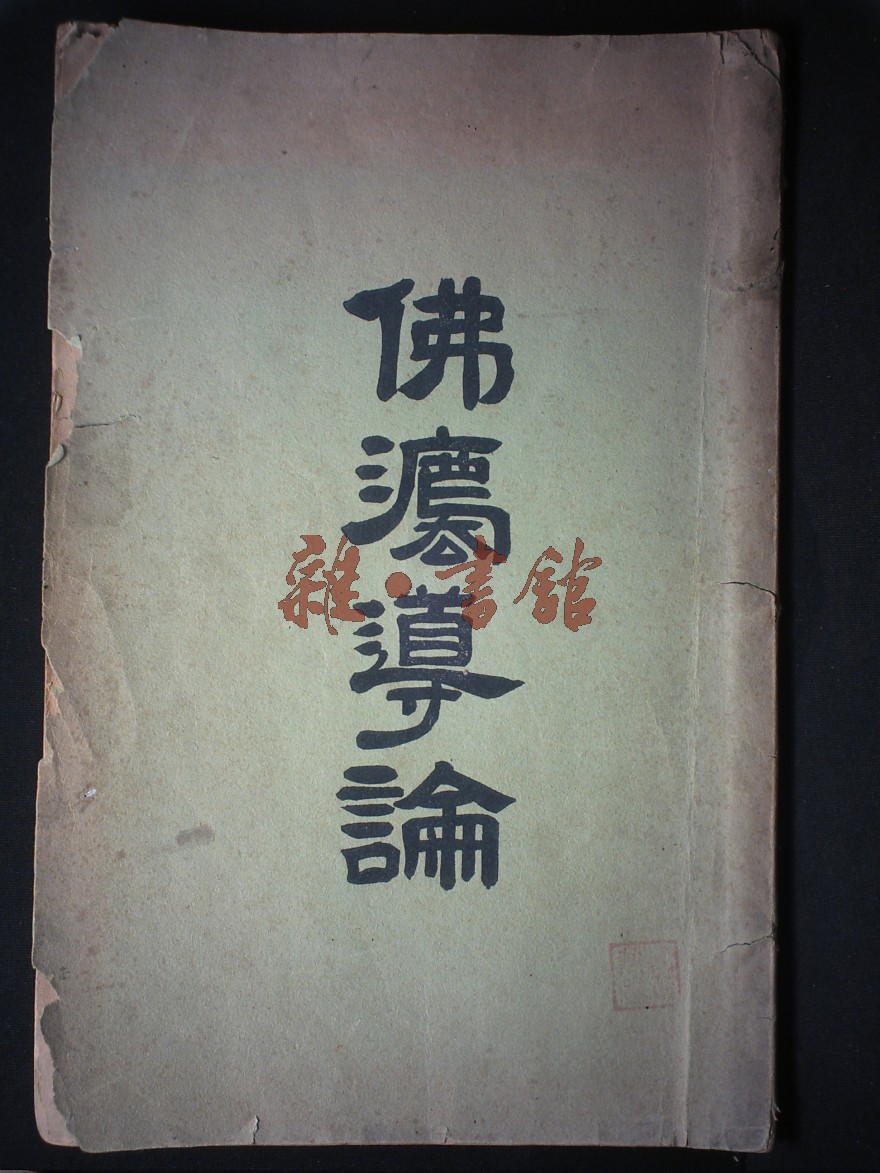 佛灋導論
雜·書館